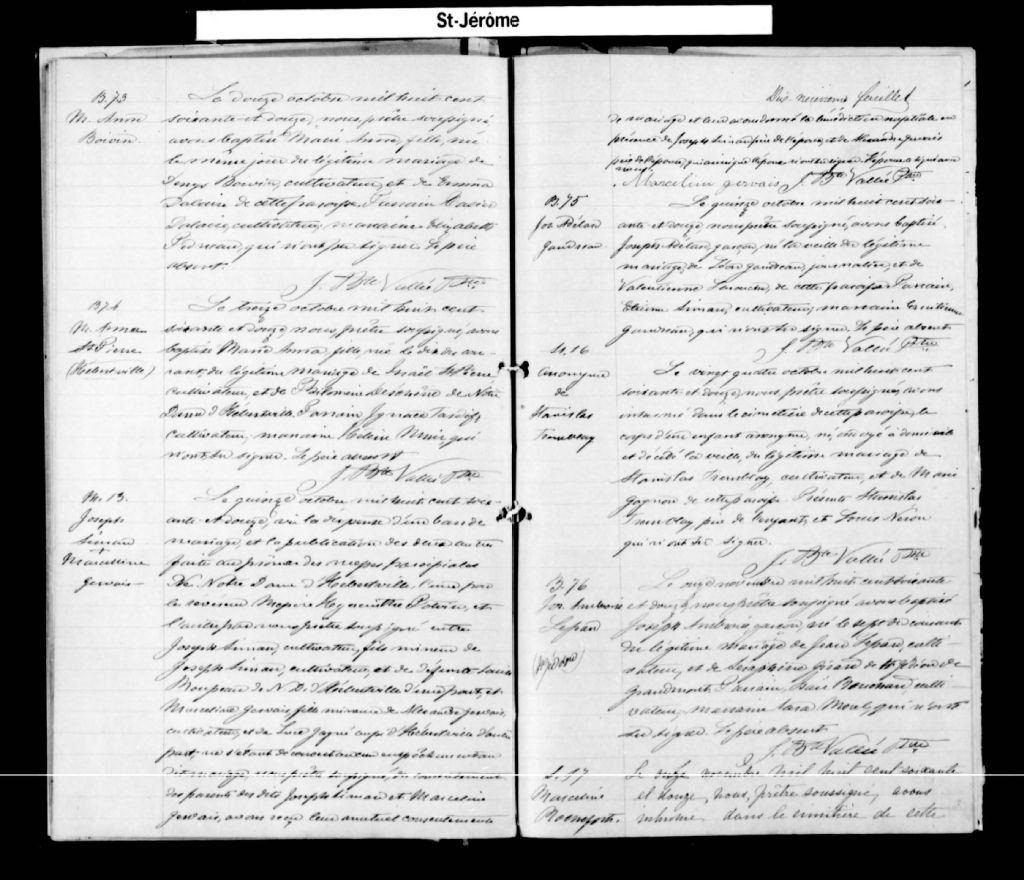 St-Jérôme
B.73
M. Anna
Boivin
Le douze octobre mil huit cent
soixante et douze, nous, prêtre soussigné
avons baptisé Marie Anna, fille, née
le même jour du légitime mariage de
Boivin, cultivateur, et de Emma
de cette paroisse. Parrain
cultivateur, marraine Elizabeth
qui n'ont su signer. Le père
absent.
J. Bte Vallée Ptre
B74
M. Anna
St-Pierre
(Hébertville)
Le treize octobre mil huit cent
soixante et douze, nous, prêtre soussigné, avons
baptisé Marie Anna, fille, née le dix du cou-
rant, du légitime mariage de Israël St-Pierre
cultivateur, et de Philomène de Notre
Dame d'Hébertville. Parrain Ignace
cultivateur, marraine qui
n'ont su signer. Le père absent
J. Bte Vallée Ptre
M. 13.
Joseph
Simard
Marcelline
Gervais
Le quinze octobre mil huit cent soix-
ante et douze, vu la dispense d'un ban de
mariage, et la publication des deux autres
faite au prônes des messes paroissiales
De Notre Dame d'Hébertville l'une par
le révérend Messire Hyacinthe Potvin, et
l'autre par nous prêtre soussigné entre
Joseph Simard, cultivateur, fils mineur de
Joseph Simard, cultivateur, et de défunte
de N. D. d'Hébertville d'une part, et
Marceline Gervais, fille mineure de Alexandre Gervais,
cultivateur, et de Luce Gagné aussi d'Hébertville d'autre
part, ne s'étant découvert aucun empêchement au
dit mariage, nous prêtre soussigné, du consentement
des parents des dits Joseph Simard et Marceline
Gervais, avons reçu leur mutuel consentement
Dix neuvième feuillet
de mariage et leur avons donné la bénédiction nuptiale en
présence de Joseph Simard père de l'époux, et de Alexandre Gervais
père de l'épouse, qui ainsi que l'époux n'ont su signer. L'épouse a signé avec
nous.
Marceline gervais J. Bte Vallée Ptre
B. 75
Jos Adélard
Gaudreau
Le quinze octobre mil huit cent soix-
ante et douze, nous prêtre soussigné, avons baptisé
Joseph Adélard, garçon, né la veille du légitime
mariage de Gaudreau, journalier, et de
Valentienne de cette paroisse Parrain,
Etienne Simard, cultivateur, marraine
Gaudreau, qui n'ont su signer. Le père absent
J. Bte Vallée Ptre
S. 16
Anonyme
de
Stanislas
Tremblay
Le vingt quatre octobre mil huit cent
soixante et douze, nous prêtre soussigné, avons
inhumé dans le cimetière de cette paroisse, le
corps d'un enfant anonyme, né, ondoyé à domicile
et décédé la veille, du légitime mariage de
Stanislas Tremblay, cultivateur, et de Marie
Gagnon de cette paroisse. Présents Stanislas
Tremblay, père de l'enfant, et Louis Néron
qui n'ont su signer.
J. Bte Vallée Ptre
B. 76
Jos. Ambroise
(St Jérôme)
Le onze novembre mil huit cent soixante
et douze, nous prêtre soussigné avons baptisé
Joseph Ambroise garçon, né le sept du courant
du légitime mariage de Jean culti
vateur, et de Séraphine Girard de St Gédéon de
Grandmont. Parrain, culti
vateur, marraine Sara qui n'ont
su signer. Le père absent
J. Bte Vallée Ptre
S. 17
Marceline
Le onze novembre mil huit cent soixante
et douze, nous, prêtre soussigné, avons
inhumé dans le cimetière de cette